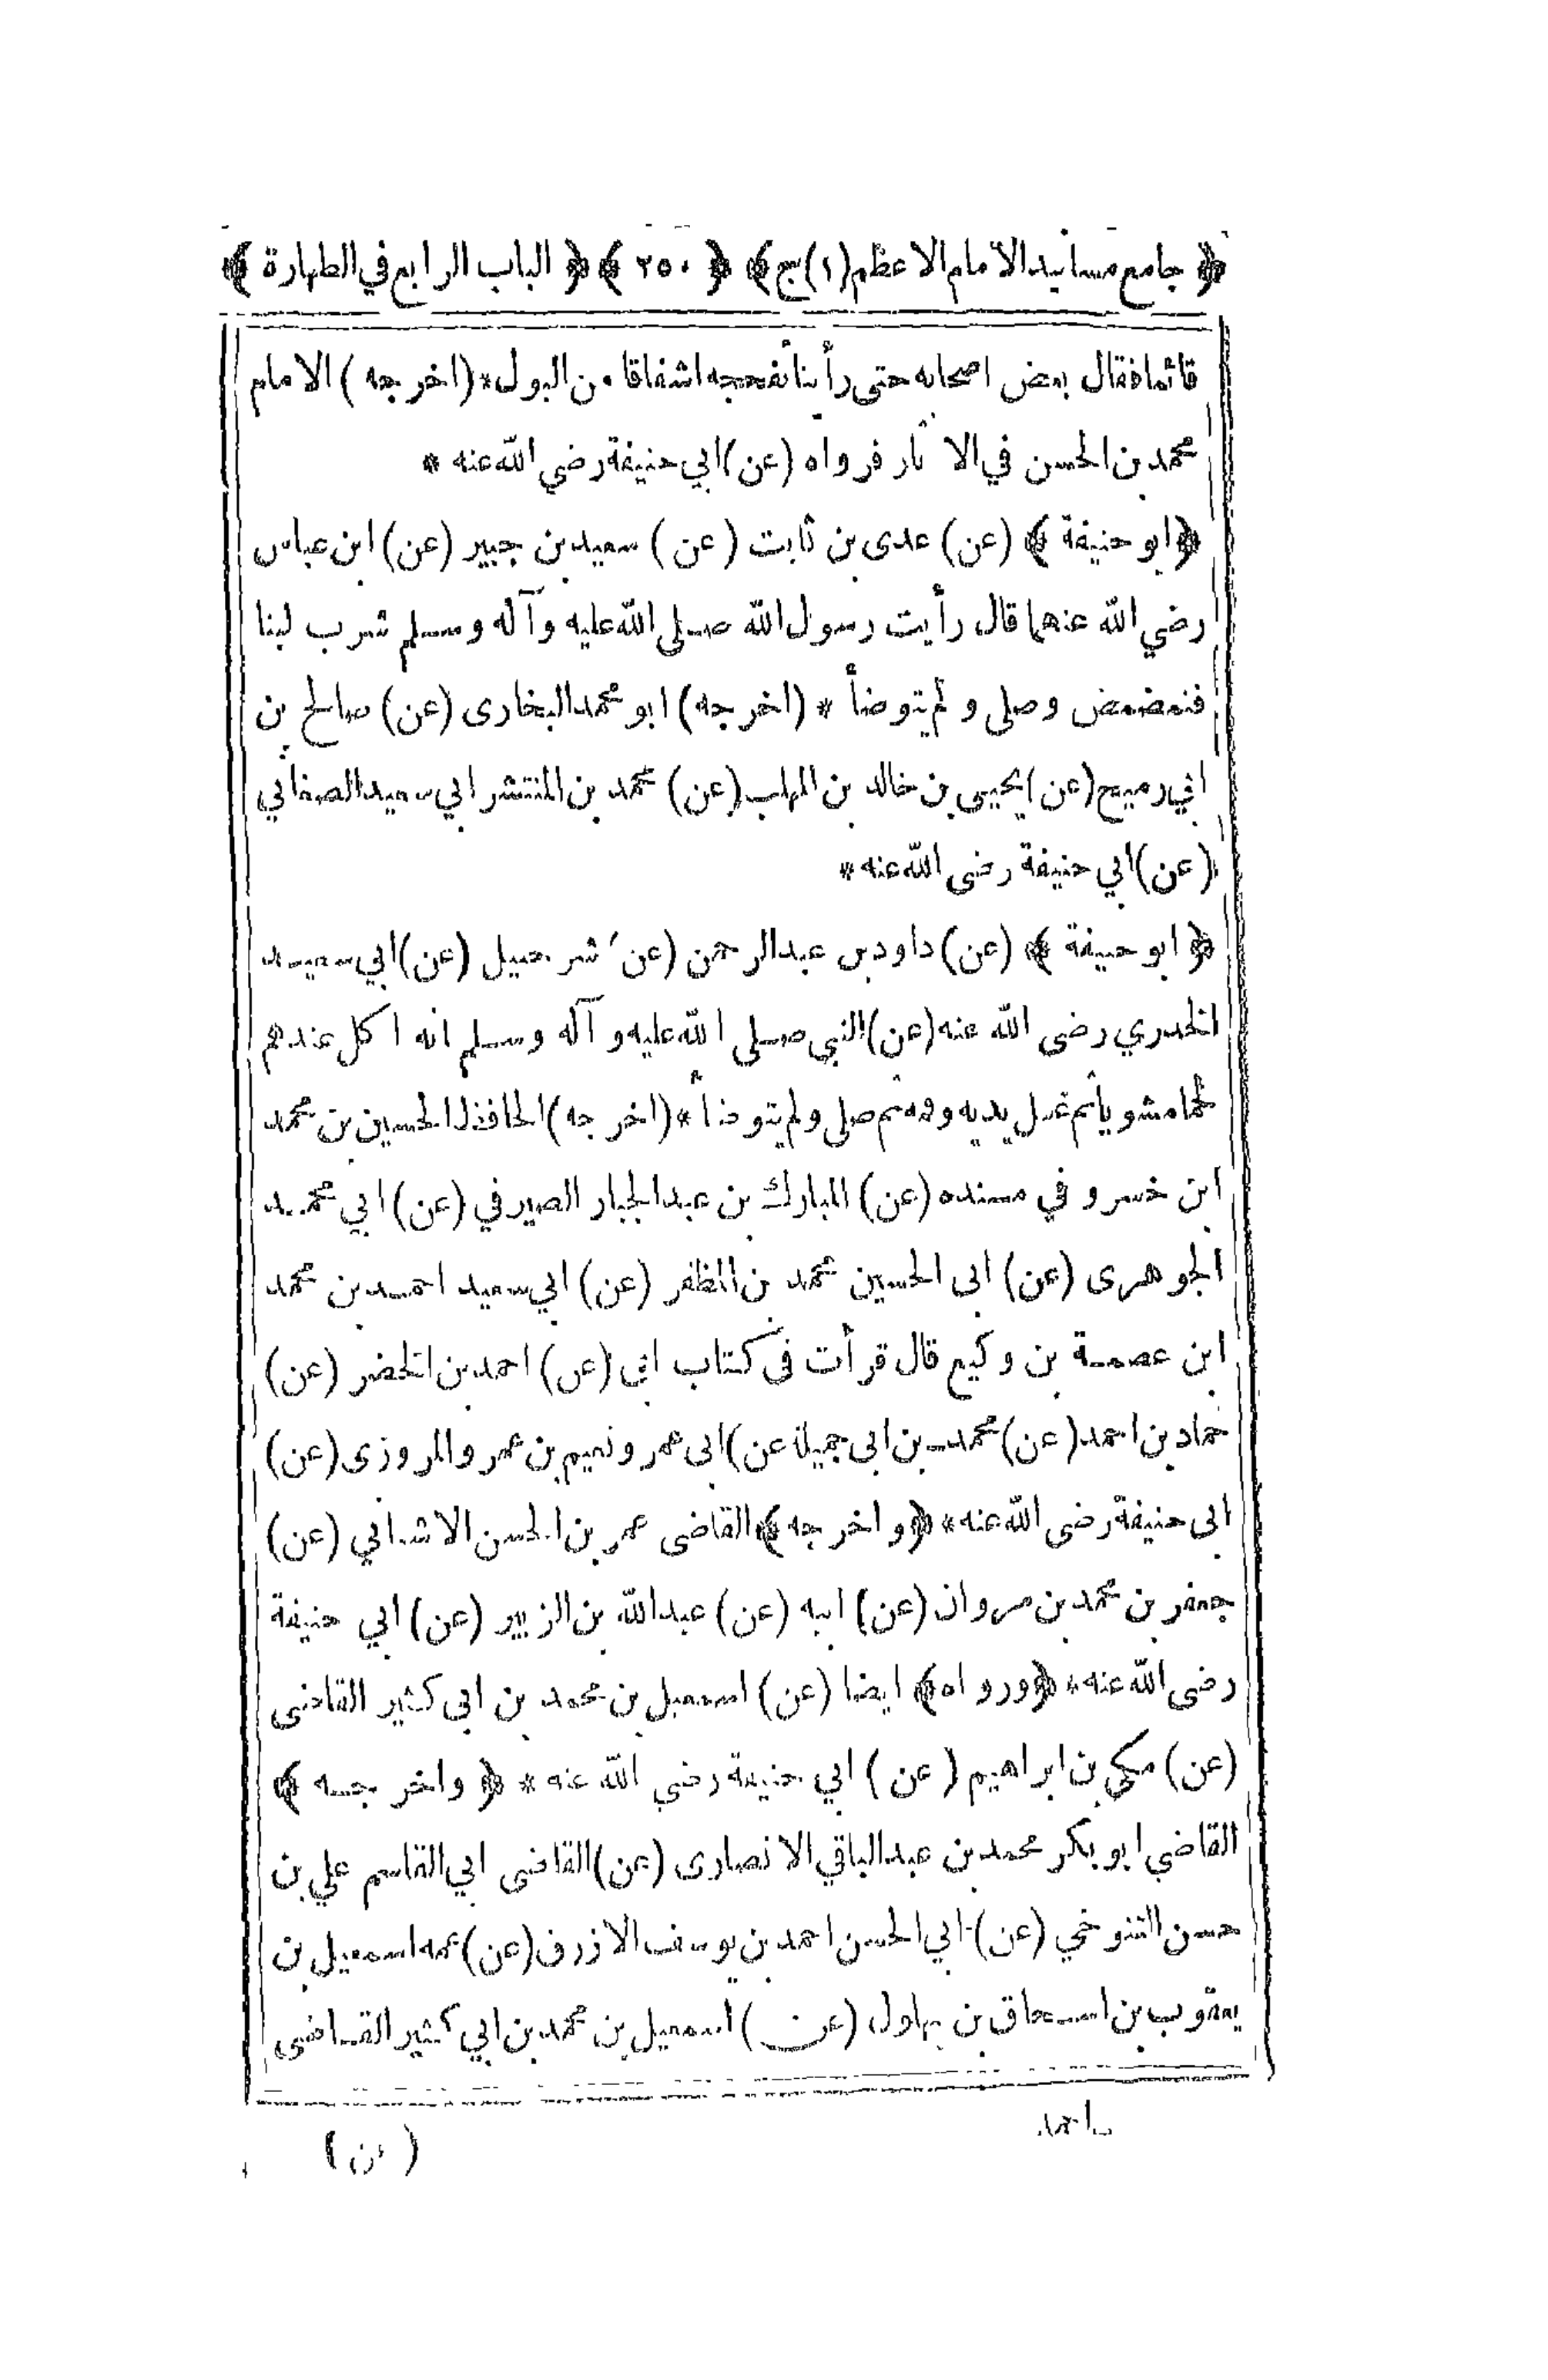 ﴿ جامع مسانيد الامام الاعظم (١) ج ﴾ ﴿ ٢٥٠ ﴾ ﴿ الباب الرابع في الطهارة ﴾
قائما فقال بعض اصحابه حتى رأينا تفحجه اشفاقا من البول * (اخرجه) الامام
محمد بن الحسن في الآثار فرواه (عن) ابي حنيفة رضي الله عنه *
﴿ ابو حنيفة ﴾ (عن) عدى بن ثابت (عن) سعيد بن جبير (عن) ابن عباس
رضي الله عنهما قال رأيت رسول الله صلى الله عليه وآله وسلم شرب لبنا
فتمضمض وصلى ولم يتوضأ * (اخرجه) ابو محمد البخارى (عن) صالح بن
ابي رميح (عن) يحيى بن خالد بن المهلب (عن) محمد بن المنتشر ابي سعيد الصغاني
(عن) ابي حنيفة رضى الله عنه *
﴿ ابو حنيفة ﴾ (عن) داود بن عبد الرحمن (عن) شرحبيل (عن) ابي سعيد
الخدري رضى الله عنه (عن) النبي صلى الله عليه وآله وسلم انه اكل عندهم
لحما مشويا ثم غسل يديه وفمه ثم صلى ولم يتوضأ * (اخرجه) الحافظ الحسين بن محمد
ابن خسرو في مسنده (عن) المبارك بن عبد الجبار الصيرفي (عن) ابي محمد
الجوهرى (عن) ابى الحسين محمد بن المظفر (عن) ابي سعيد احمد بن محمد
ابن عصمة بن وكيع قال قرأت فى كتاب ابى (عن) احمد بن الخضر (عن)
حماد بن احمد (عن) محمد بن ابى جميلة (عن) ابى عمرو نعيم بن عمرو المروزى (عن)
ابى حنيفة رضى الله عنه * ﴿ واخرجه ﴾ القاضى عمر بن الحسن الاشناني (عن)
جعفر بن محمد بن مروان (عن) ابيه (عن) عبد الله بن الزبير (عن) ابي حنيفة
رضى الله عنه * ﴿ ورواه ﴾ ايضا (عن) اسمعيل بن محمد بن ابى كثير القاضى
(عن) مكي بن ابراهيم (عن) ابي حنيفة رضي الله عنه * ﴿ واخرجه ﴾
القاضي ابو بكر محمد بن عبد الباقي الانصارى (عن) القاضى ابي القاسم علي بن
حسن التنوخي (عن) ابي الحسن احمد بن يوسف الازرق (عن) عمه اسمعيل بن
يعقوب بن اسحاق بن بهلول (عن) اسمعيل بن محمد بن ابي كثير القاضى
(عن)